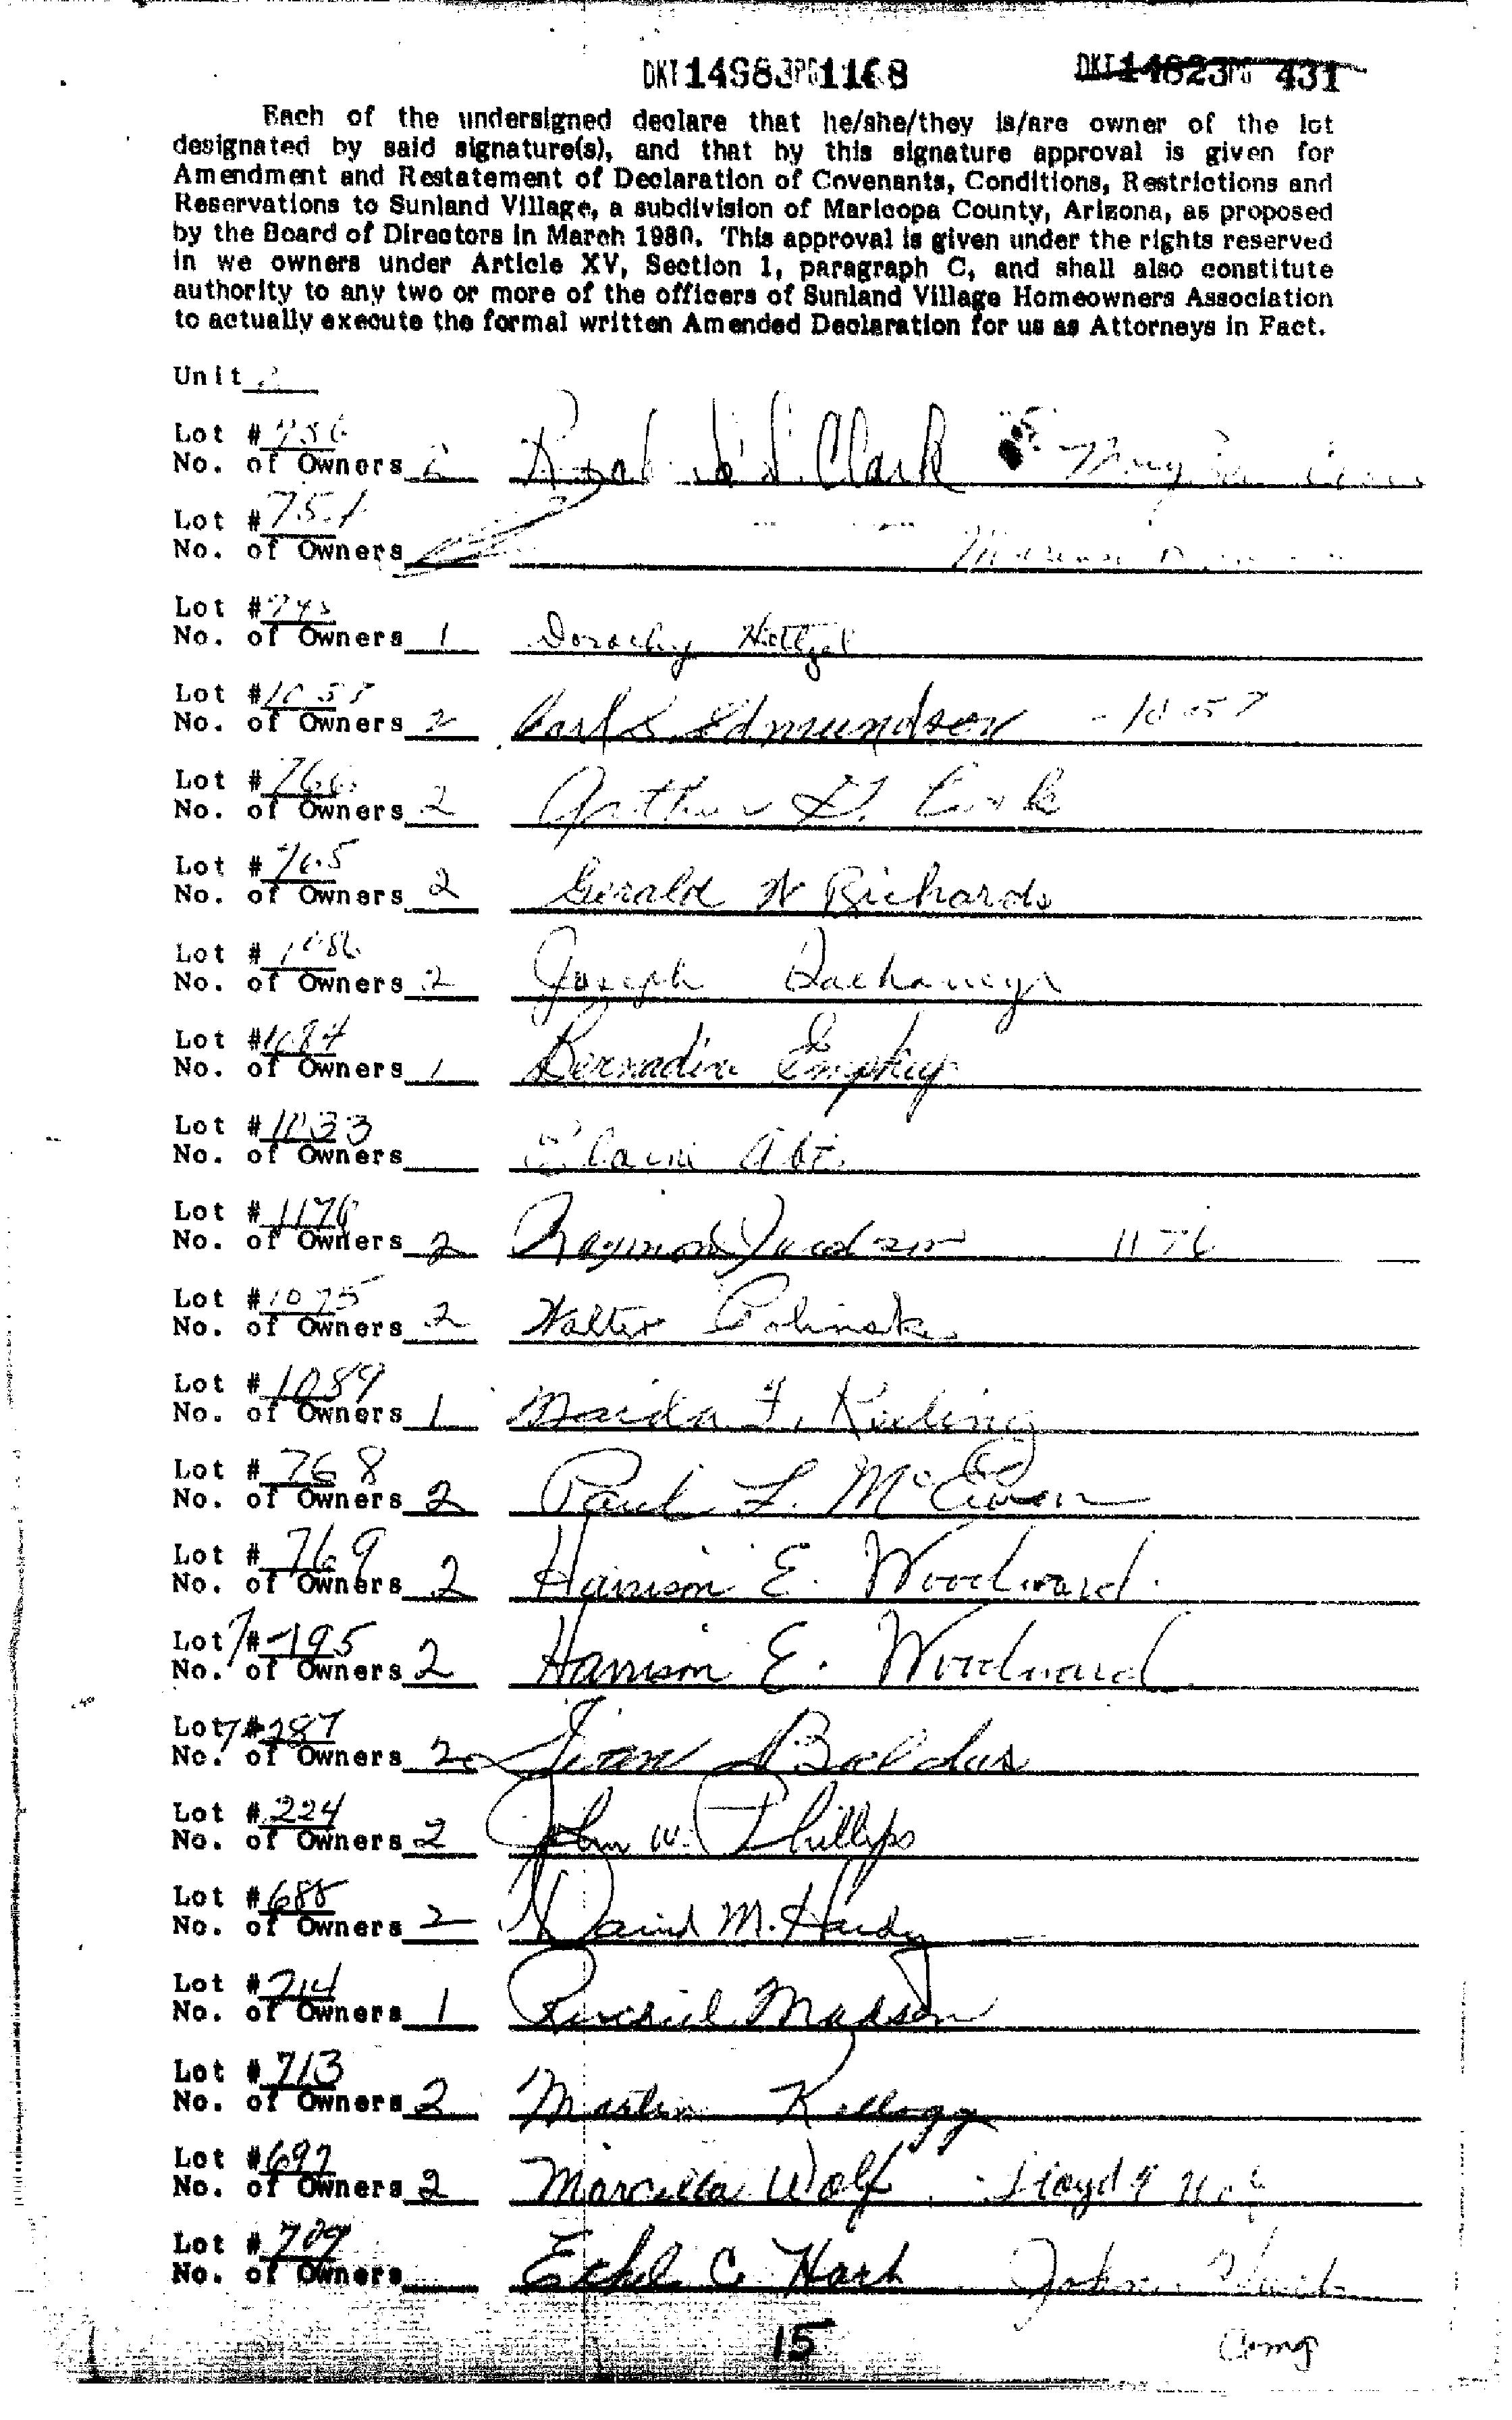 DKT 14983 PG 1168 DKT 14823 PG 431
Each of the undersigned declare that he/she/they is/are owner of the lot
designated by said signature(s), and that by this signature approval is given for
Amendment and Restatement of Declaration of Covenants, Conditions, Restrictions and
Reservations to Sunland Village, a subdivision of Maricopa County, Arizona, as proposed
by the Board of Directors in March 1980. This approval is given under the rights reserved
in we owners under Article XV, Section 1, paragraph C, and shall also constitute
authority to any two or more of the officers of Sunland Village Homeowners Association
to actually execute the formal written Amended Declaration for us as Attorneys in Fact.
Unit
Lot #
No. of Owners 2 Clark Mary
Lot #
No. of Owners
Lot #
No. of Owners 1 Dorothy
Lot #1057
No. of Owners 2 Carl S Edmundson - 1057
Lot #766
No. of Owners 2 Arthur
Lot #765
No. of Owners 2 Gerald W Richards
Lot #1086
No. of Owners 2 Joseph
Lot #1084
No. of Owners 1
Lot #1033
No. of Owners Elaine Abt
Lot #1176
No. of Owners 2 Raymond 1176
Lot #1075
No. of Owners 2 Walter
Lot #1089
No. of Owners 1 Maida F. Keeling
Lot #768
No. of Owners 2 Paul L. McEwen
Lot #769
No. of Owners 2 Harrison E. Woodward
Lot 7#-195
No. of Owners 2 Harrison E. Woodward
Lot 7#287
No. of Owners 2
Lot #224
No. of Owners 2 John W. Phillips
Lot #688
No. of Owners 2 David M. Hardy
Lot #714
No. of Owners 1 Madsen
Lot #713
No. of Owners 2 Martin Kellogg
Lot #697
No. of Owners 2 Marcella Wolf Lloyd
Lot #709
No. of Owners Ethel C Hach John
15